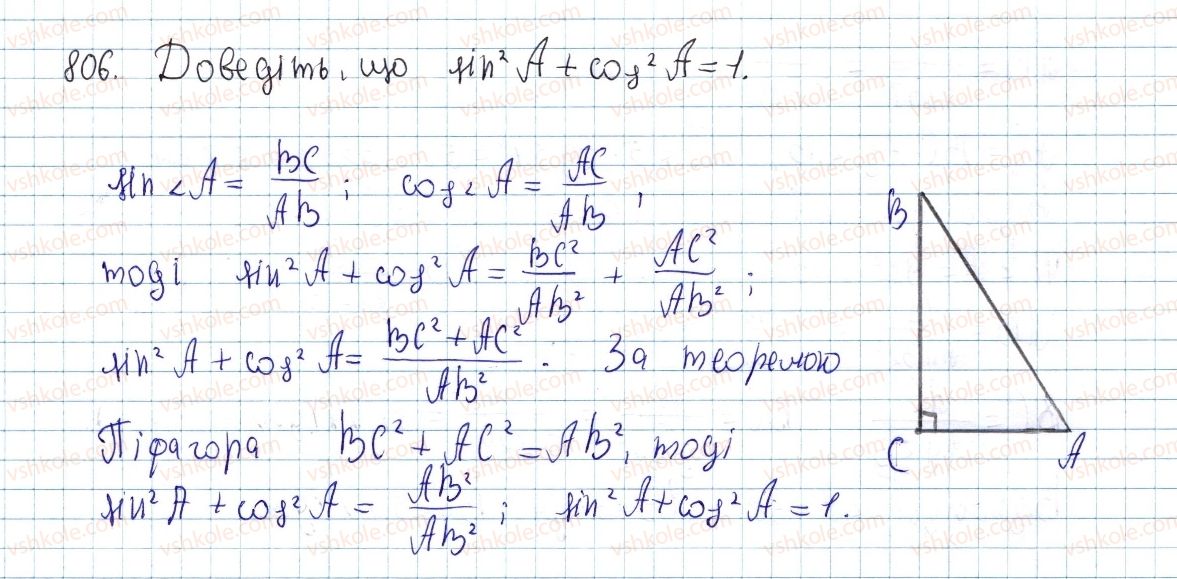 806. Доведіть, що sin² A + cos² A = 1.
sin ∠A = BC/AB ; cos ∠A = AC/AB ,
тоді sin² A + cos² A = BC²/AB² + AC²/AB² ;
sin² A + cos² A = (BC² + AC²)/AB² . За теоремою
Піфагора BC² + AC² = AB², тоді
sin² A + cos² A = AB²/AB² ; sin² A + cos² A = 1.
B
C A
vshkole.com